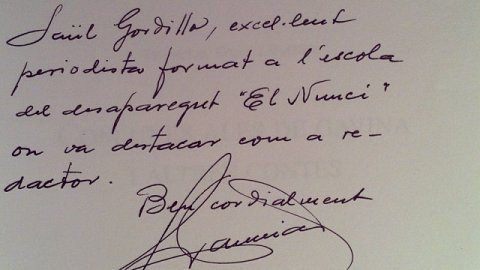 Saül Gordillo, excel·lent
periodista format a l'escola
del desaparegut "El Nunci"
on va destacar com a re-
dactor.
Ben cordialment